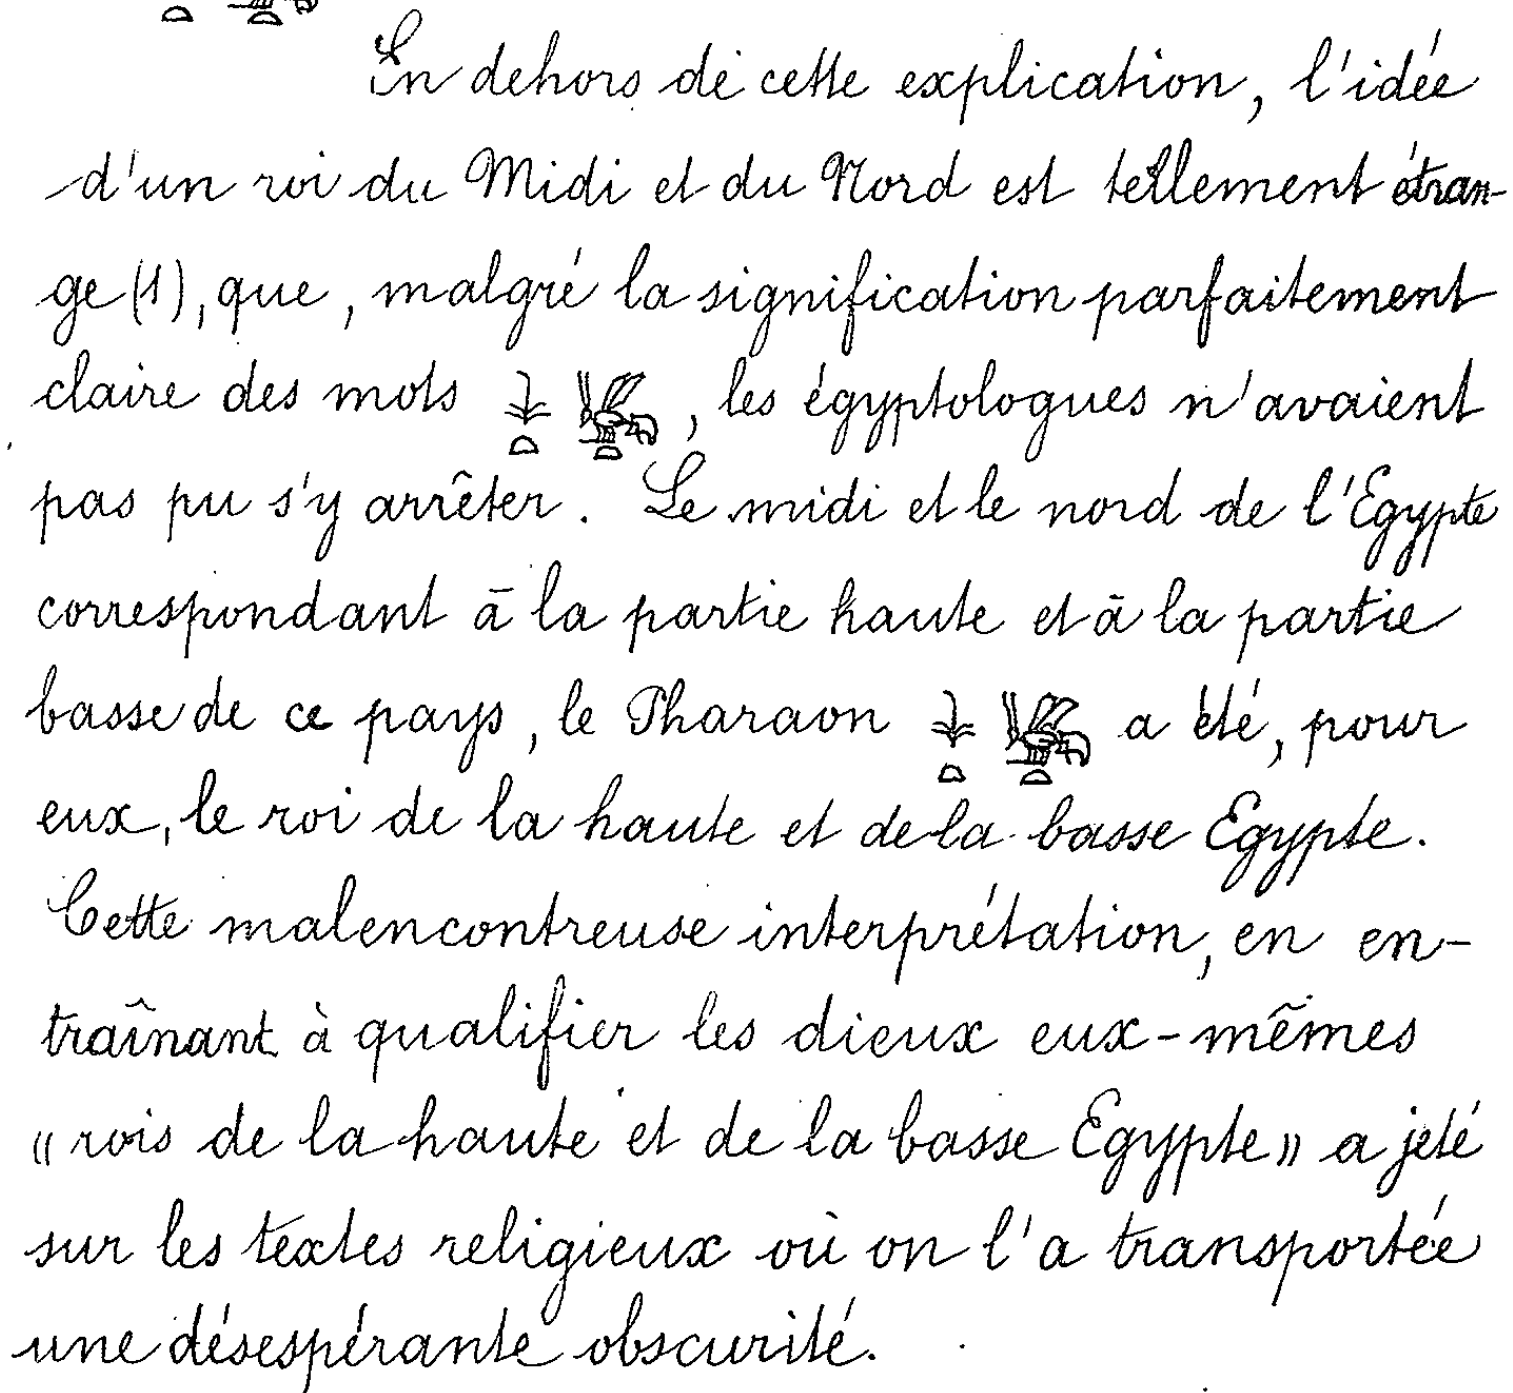 En dehors de cette explication, l'idée
d'un roi du Midi et du Nord est tellement étran-
ge (1), que, malgré la signification parfaitement
claire des mots 𓇓𓏏 𓆤𓏏, les égyptologues n'avaient
pas pu s'y arrêter. Le midi et le nord de l'Egypte
correspondant à la partie haute et à la partie
basse de ce pays, le Pharaon 𓇓𓏏 𓆤𓏏 a été, pour
eux, le roi de la haute et de la basse Egypte.
Cette malencontreuse interprétation, en en-
traînant à qualifier les dieux eux-mêmes
« rois de la haute et de la basse Egypte » a jeté
sur les textes religieux où on l'a transportée
une désespérante obscurité.